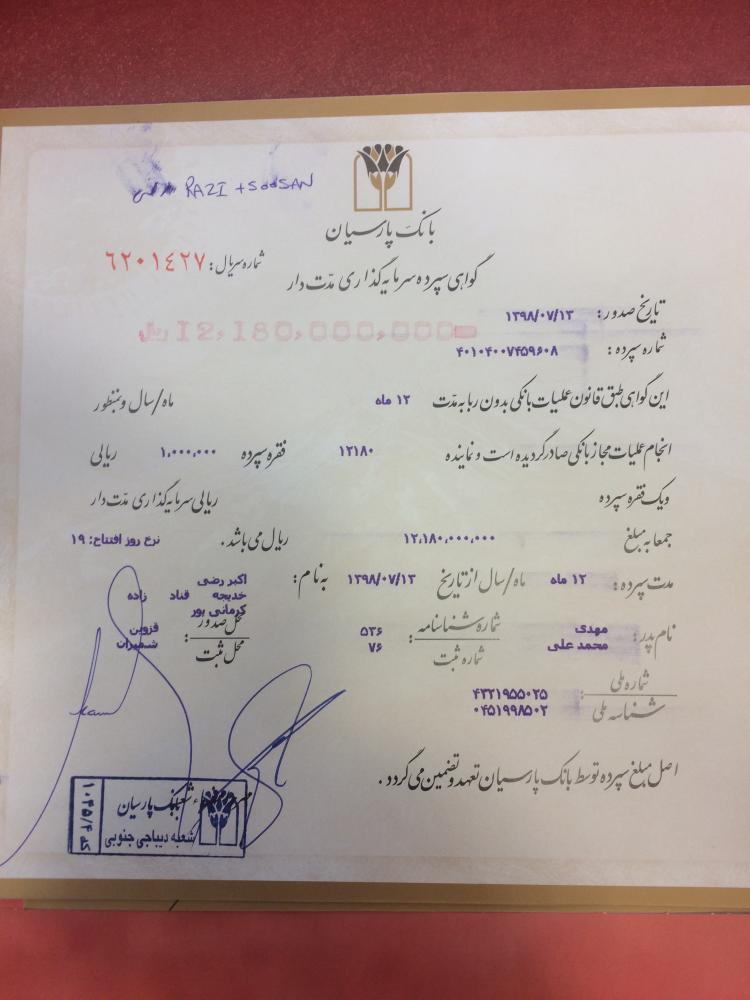 RAZI + SOOSAN
بانک پارسیان
شماره سریال: ٦٢٠١٤٢٧
گواهی سپرده سرمایه گذاری مدّت دار
تاریخ صدور: ۱۳۹۸/۰۷/۱۳
ریال 12,180,000,000
شماره سپرده: ۴۰۱۰۴۰۰۷۴۵۹۶۰۸
این گواهی طبق قانون عملیات بانکی بدون ربا به مدّت ۱۲ ماه ماه/سال و بمنظور
انجام عملیات مجاز بانکی صادر گردیده است و نماینده ۱۲۱۸۰ فقره سپرده ۱,۰۰۰,۰۰۰ ریالی
و یک فقره سپرده ریالی سرمایه گذاری مدّت دار
جمعا به مبلغ ۱۲,۱۸۰,۰۰۰,۰۰۰ ریال می باشد. نرخ روز افتتاح: ۱۹
مدت سپرده: ۱۲ ماه ماه/سال از تاریخ ۱۳۹۸/۰۷/۱۳ به نام: اکبر رضی
خدیجه قناد زاده
کرمانی پور
نام پدر: مهدی شماره شناسنامه: ۵۳۶ محل صدور: قزوین
محمد علی شماره ثبت ۷۶ محل ثبت شمیران
شماره ملی: ۴۳۲۱۹۵۵۰۲۵
شناسه ملی ۰۴۵۱۹۹۸۵۰۲
اصل مبلغ سپرده توسط بانک پارسیان تعهد و تضمین می گردد.
بانک پارسیان
شعبه دیباجی جنوبی
کد ۱۰۲۵/۴